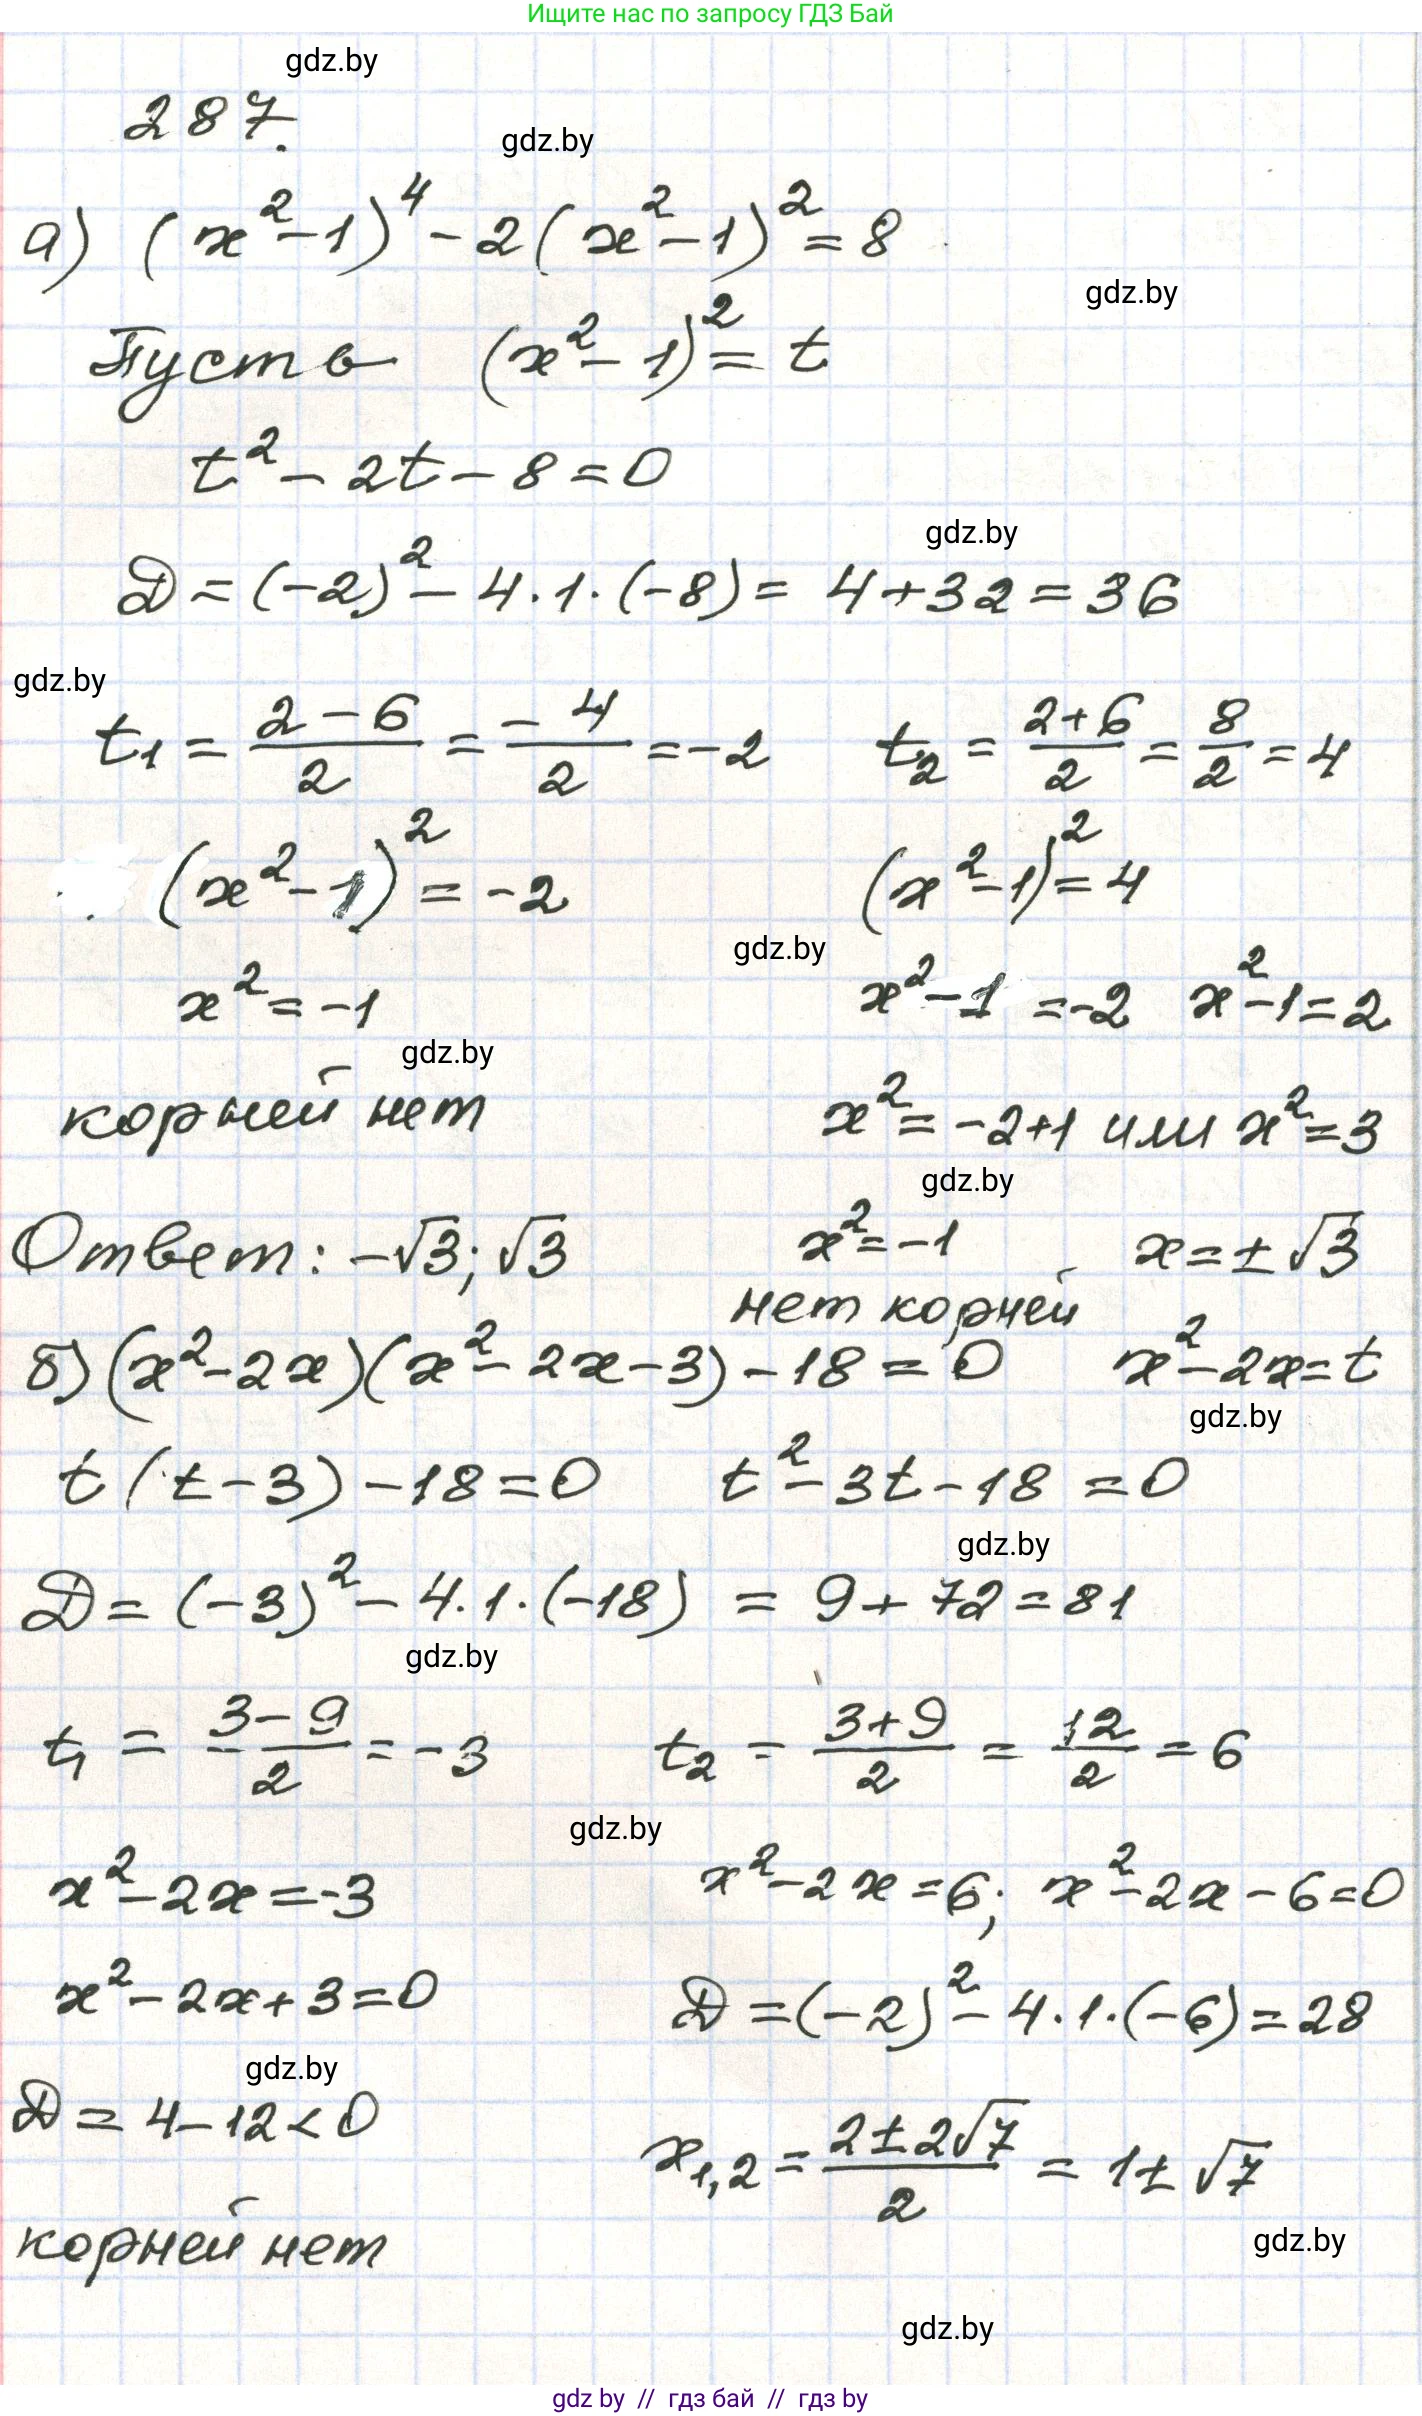 Ищите нас по запросу ГДЗ Бай
gdz.by
287.
gdz.by
а) (x²-1)⁴ - 2(x²-1)² = 8
gdz.by
Пусть (x²-1)² = t
t² - 2t - 8 = 0
gdz.by
Д = (-2)² - 4·1·(-8) = 4+32 = 36
gdz.by
t₁ = (2-6)/2 = -4/2 = -2 t₂ = (2+6)/2 = 8/2 = 4
(x²-1)² = -2 (x²-1)² = 4
gdz.by
x² = -1 x²-1 = -2 x²-1 = 2
gdz.by
корней нет x² = -2+1 или x² = 3
gdz.by
Ответ: -√3; √3 x² = -1 x = ±√3
нет корней
б) (x²-2x)(x²-2x-3) - 18 = 0 x²-2x = t
gdz.by
t(t-3) - 18 = 0 t² - 3t - 18 = 0
gdz.by
Д = (-3)² - 4·1·(-18) = 9 + 72 = 81
gdz.by
t₁ = (3-9)/2 = -3 t₂ = (3+9)/2 = 12/2 = 6
gdz.by
x²-2x = -3 x²-2x = 6; x²-2x-6 = 0
x²-2x+3 = 0 Д = (-2)² - 4·1·(-6) = 28
gdz.by
Д = 4-12 < 0 x₁,₂ = (2±2√7)/2 = 1±√7
gdz.by
корней нет
gdz.by
gdz by // гдз бай // гдз by